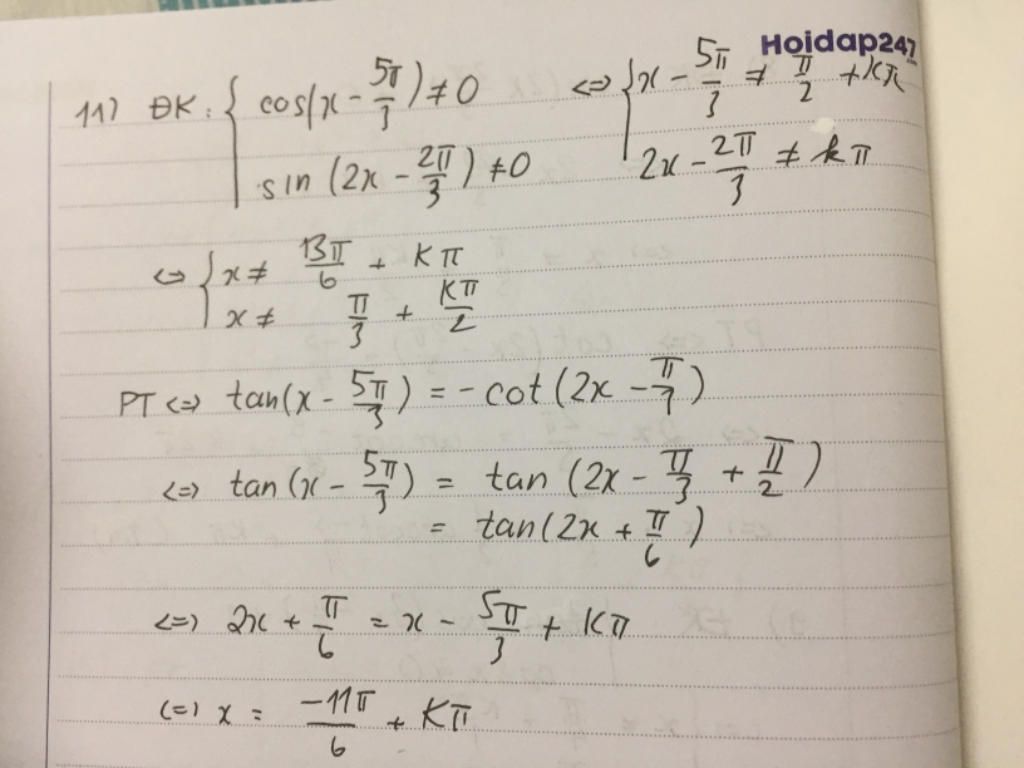 Hoidap247
11) ĐK: { cos(x - 5π/3) ≠ 0 <=> { x - 5π/3 ≠ π/2 + kπ
sin (2x - 2π/3) ≠ 0 2x - 2π/3 ≠ kπ
<=> { x ≠ 13π/6 + Kπ
x ≠ π/3 + Kπ/2
PT <=> tan(x - 5π/3) = - cot (2x - π/3)
<=> tan (x - 5π/3) = tan (2x - π/3 + π/2)
= tan(2x + π/6)
<=> 2x + π/6 = x - 5π/3 + Kπ
<=> x = -11π/6 + Kπ